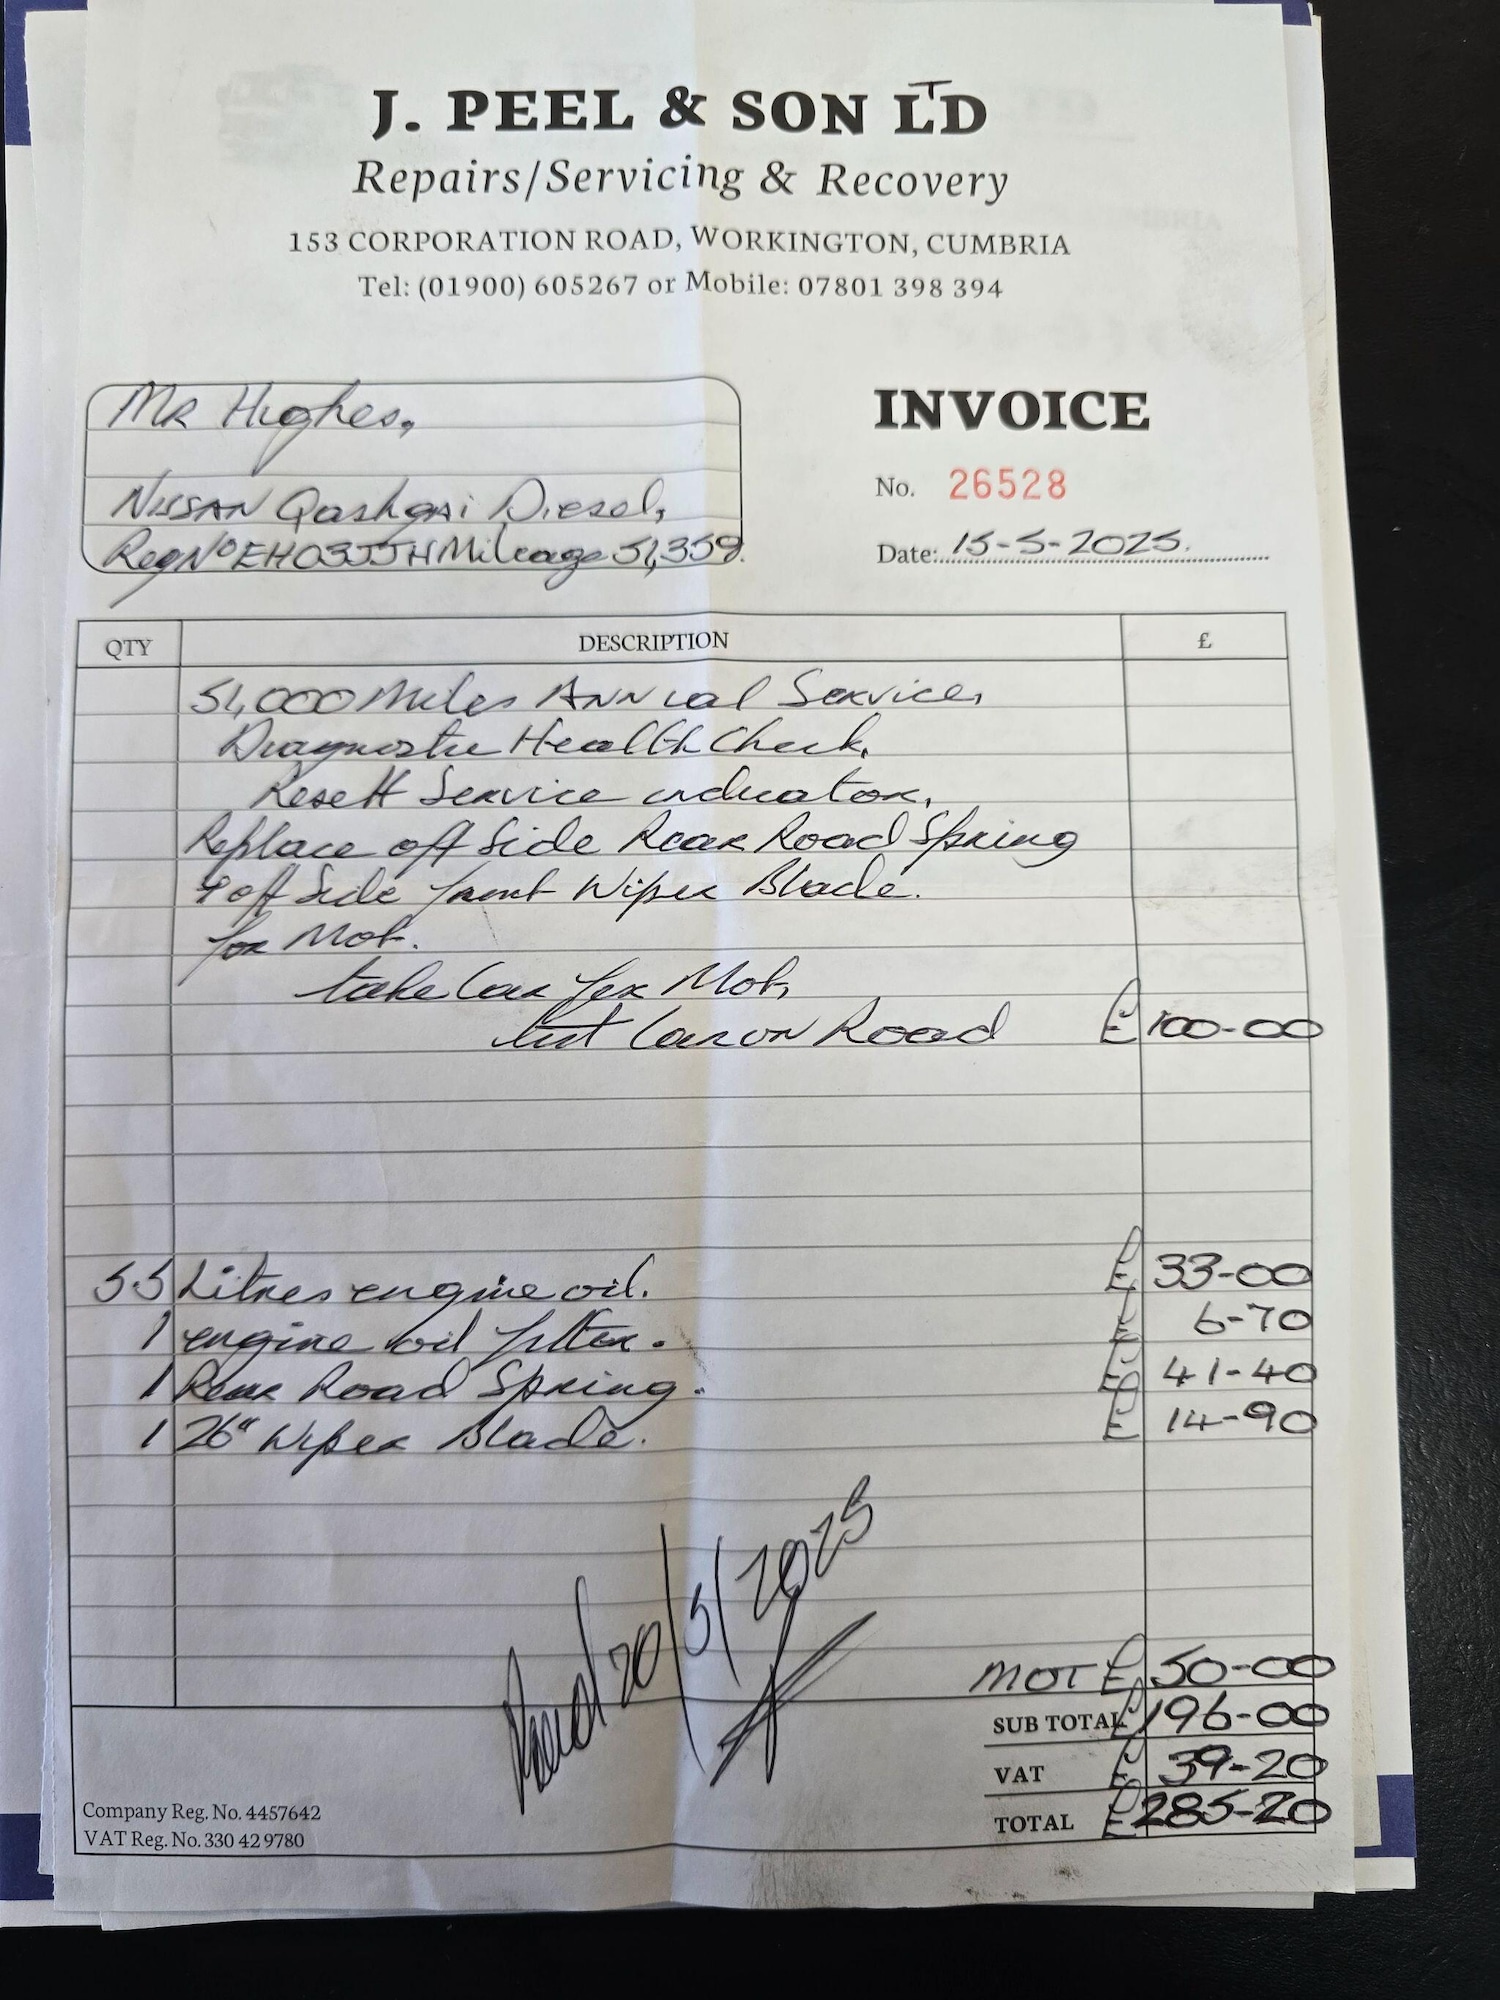 J. PEEL & SON LTD
Repairs/Servicing & Recovery
153 CORPORATION ROAD, WORKINGTON, CUMBRIA
Tel: (01900) 605267 or Mobile: 07801 398 394
Mr Hughes,
INVOICE
No. 26528
Nissan Qashqai Diesel,
Reg No EH03JJH Mileage 51,359.
Date: 15-5-2025.
QTY DESCRIPTION £
51,000 Miles Annual Service,
Diagnostic Health Check,
Resett Service indicator,
Replace off Side Rear Road Spring
& off Side front Wiper Blade.
for Mot.
take Car for Mot,
test Car on Road £ 100-00
5.5 Litres engine oil. £ 33-00
1 engine oil filter. £ 6-70
1 Rear Road Spring. £ 41-40
1 26" Wiper Blade. £ 14-90
Paid 20/5/2025
MOT £ 50-00
SUB TOTAL £ 196-00
VAT £ 39-20
TOTAL £ 285-20
Company Reg. No. 4457642
VAT Reg. No. 330 42 9780